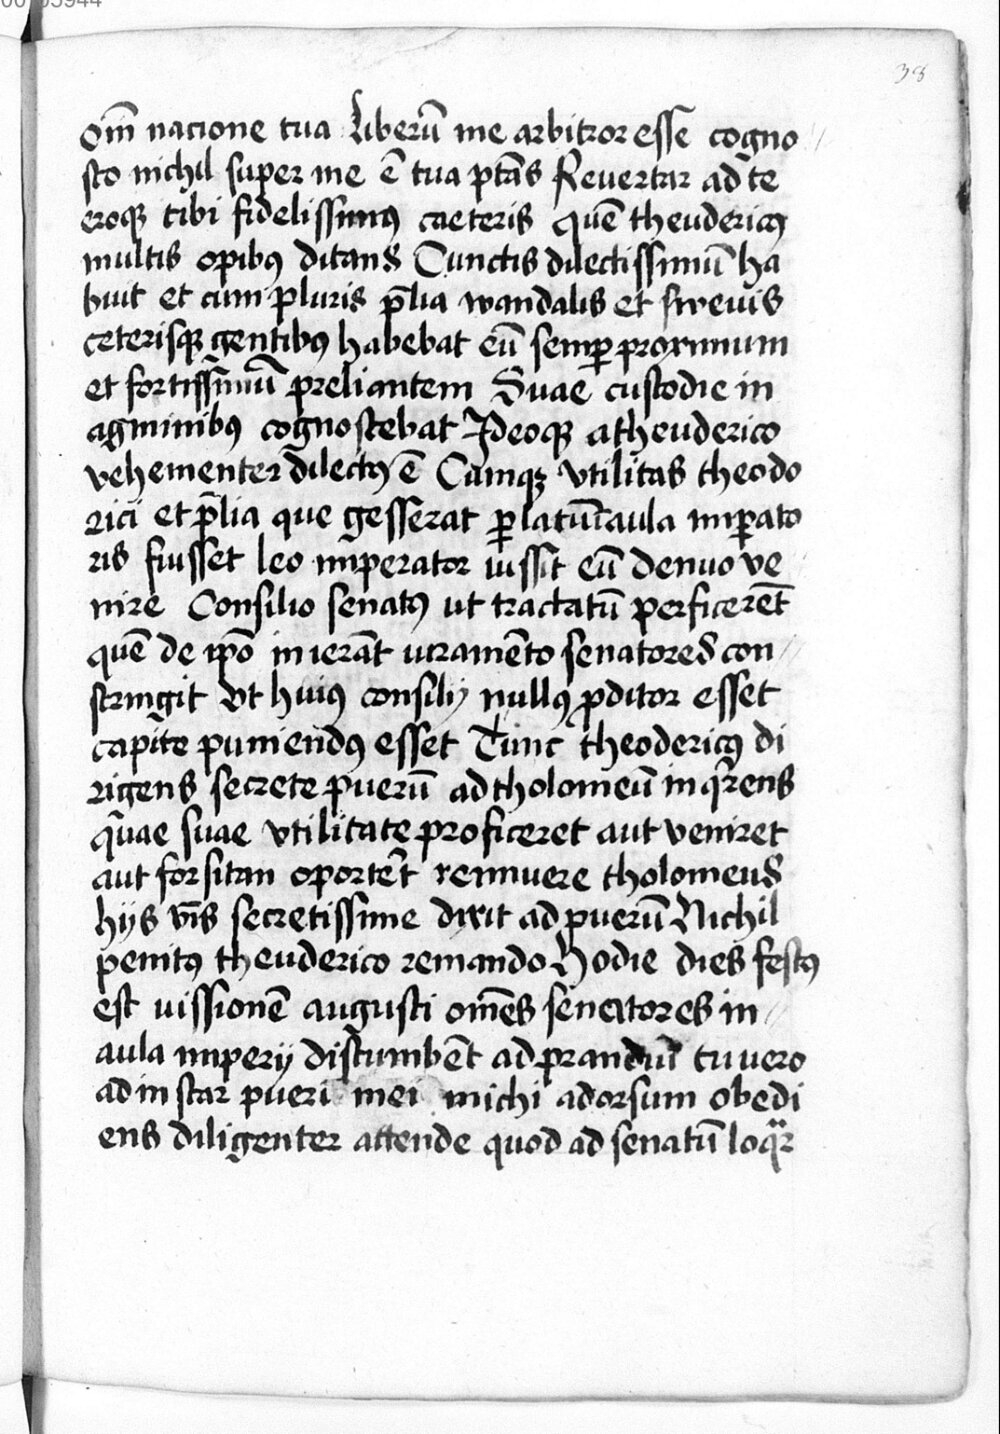 38
om̄ nacione tua Liberū me arbitror esse cogno
sco nichil super me ē tua ptās Revertar ad te
eroqꝫ tibi fidelissimꝰ caeteris quē theudericꝰ
multis opibꝰ ditans Cunctis dilectissimū ha
buit et cum pluris p̄lia wandalis et swevis
ceterisqꝫ gentibꝰ habebat eū semꝑ proximum
et fortissimū preliantem Suae custodie in
agminibꝰ cognoscebat Ideoqꝫ a theuderico
vehementer dilectꝰ ē Cumqꝫ vtilitas theodo
rici et p̄lia que gesserat ꝑlatū i aula imꝑato
ris fuisset leo imperator iussit eū denuo ve
nire Consilio senatꝰ ut tractatū perficerēt
quē de ip̄o inierāt iuramēto senatores con
stringit Vt huiꝰ consilij nullꝰ ꝓditor esset
capite puniendꝰ esset Tunc theodericꝰ di
rigens secrete puerū ad tholomeū inqͥrens
quae suae vtilitate proficeret aut veniret
aut forsitan oportēt rennuere tholomeus
hijs v̄is secretissime dixit ad puerū Nichil
penitꝰ theuderico remando Hodie dies festꝰ
est vissionē augusti om̄es senatores in
aula imperij discumbēt ad prandiū tu vero
ad instar pueri mei michi adorsum obedi
ens diligenter attende quod ad senatū loqͣr